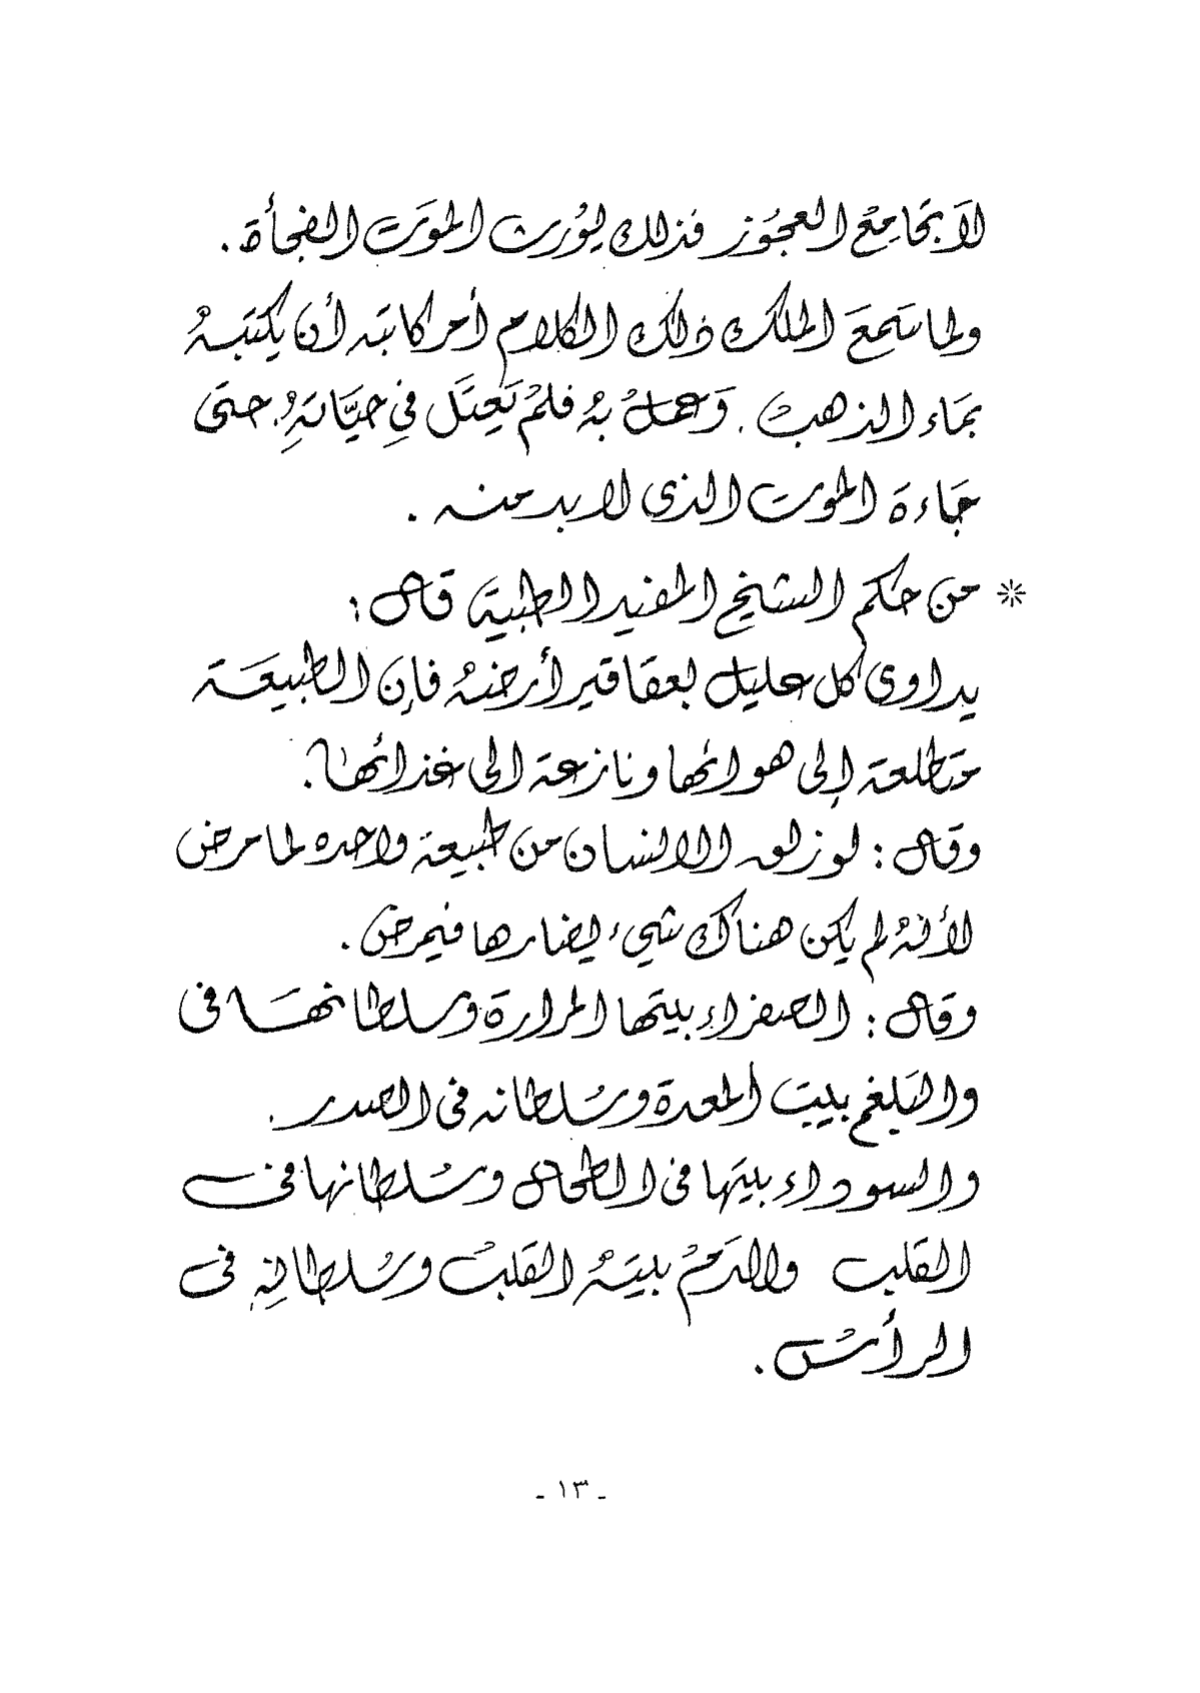 لاَ تجَامِعْ العجُوَز فذلك يُورث الموَت الفجأة .
ولما سَمِعَ الملك ذلك الكلام أمر كاتبه أن يكتبهُ
بمَاء الذهب . وَعملُ بهُ فلمْ يَعتَل فيِ حيَّاتهِ حتى
جَاءهَ الموت الذى لا بد منه .
* من حكم الشيخ المفيد الطبية قال :
يداوى كل عليل بعقاقير أرضهُ فإن الطبيعَة
متطلعة إلى هوائها ونازعة الى غذائها .
وقال : لو خلق الانسان من طبيعة واحده لما مرض
لأنهُ لم يكن هناك شيء يضارها فيمرض .
وقال : الصفراء بيتها المرارة وسلطانهَا فى
والبَلغم بيت المعدة وسُلطانه فى الصدر .
والسوداء بيتَها فى الطحال وسُلطانها فى
القلب والدَمُ بيتَهُ القلبُ وسُلطانِهِ فى
الرأسْ .
- ١٣ -